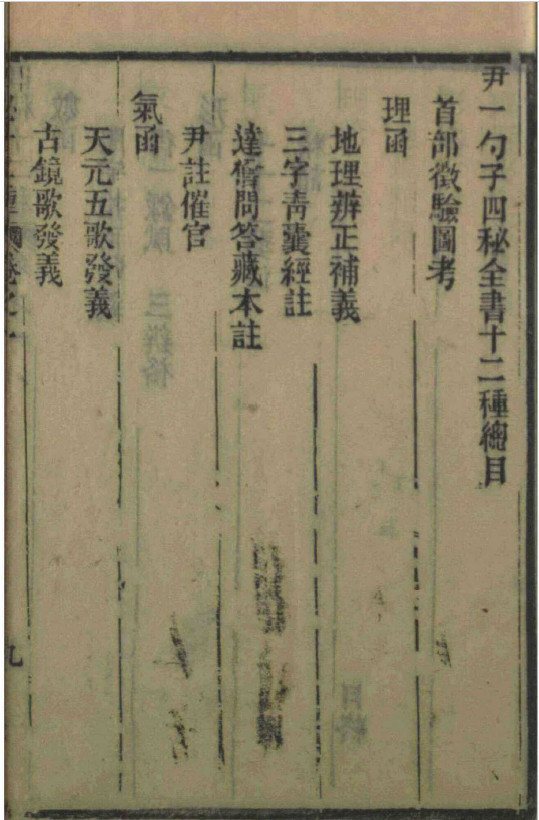 尹一勺子四秘全書十二種總目
首部徵驗圖考
理函
地理辨正補義
三字青囊經註
達僧問答藏本註
尹註催官
氣函
天元五歌發義
古鏡歌發義
九